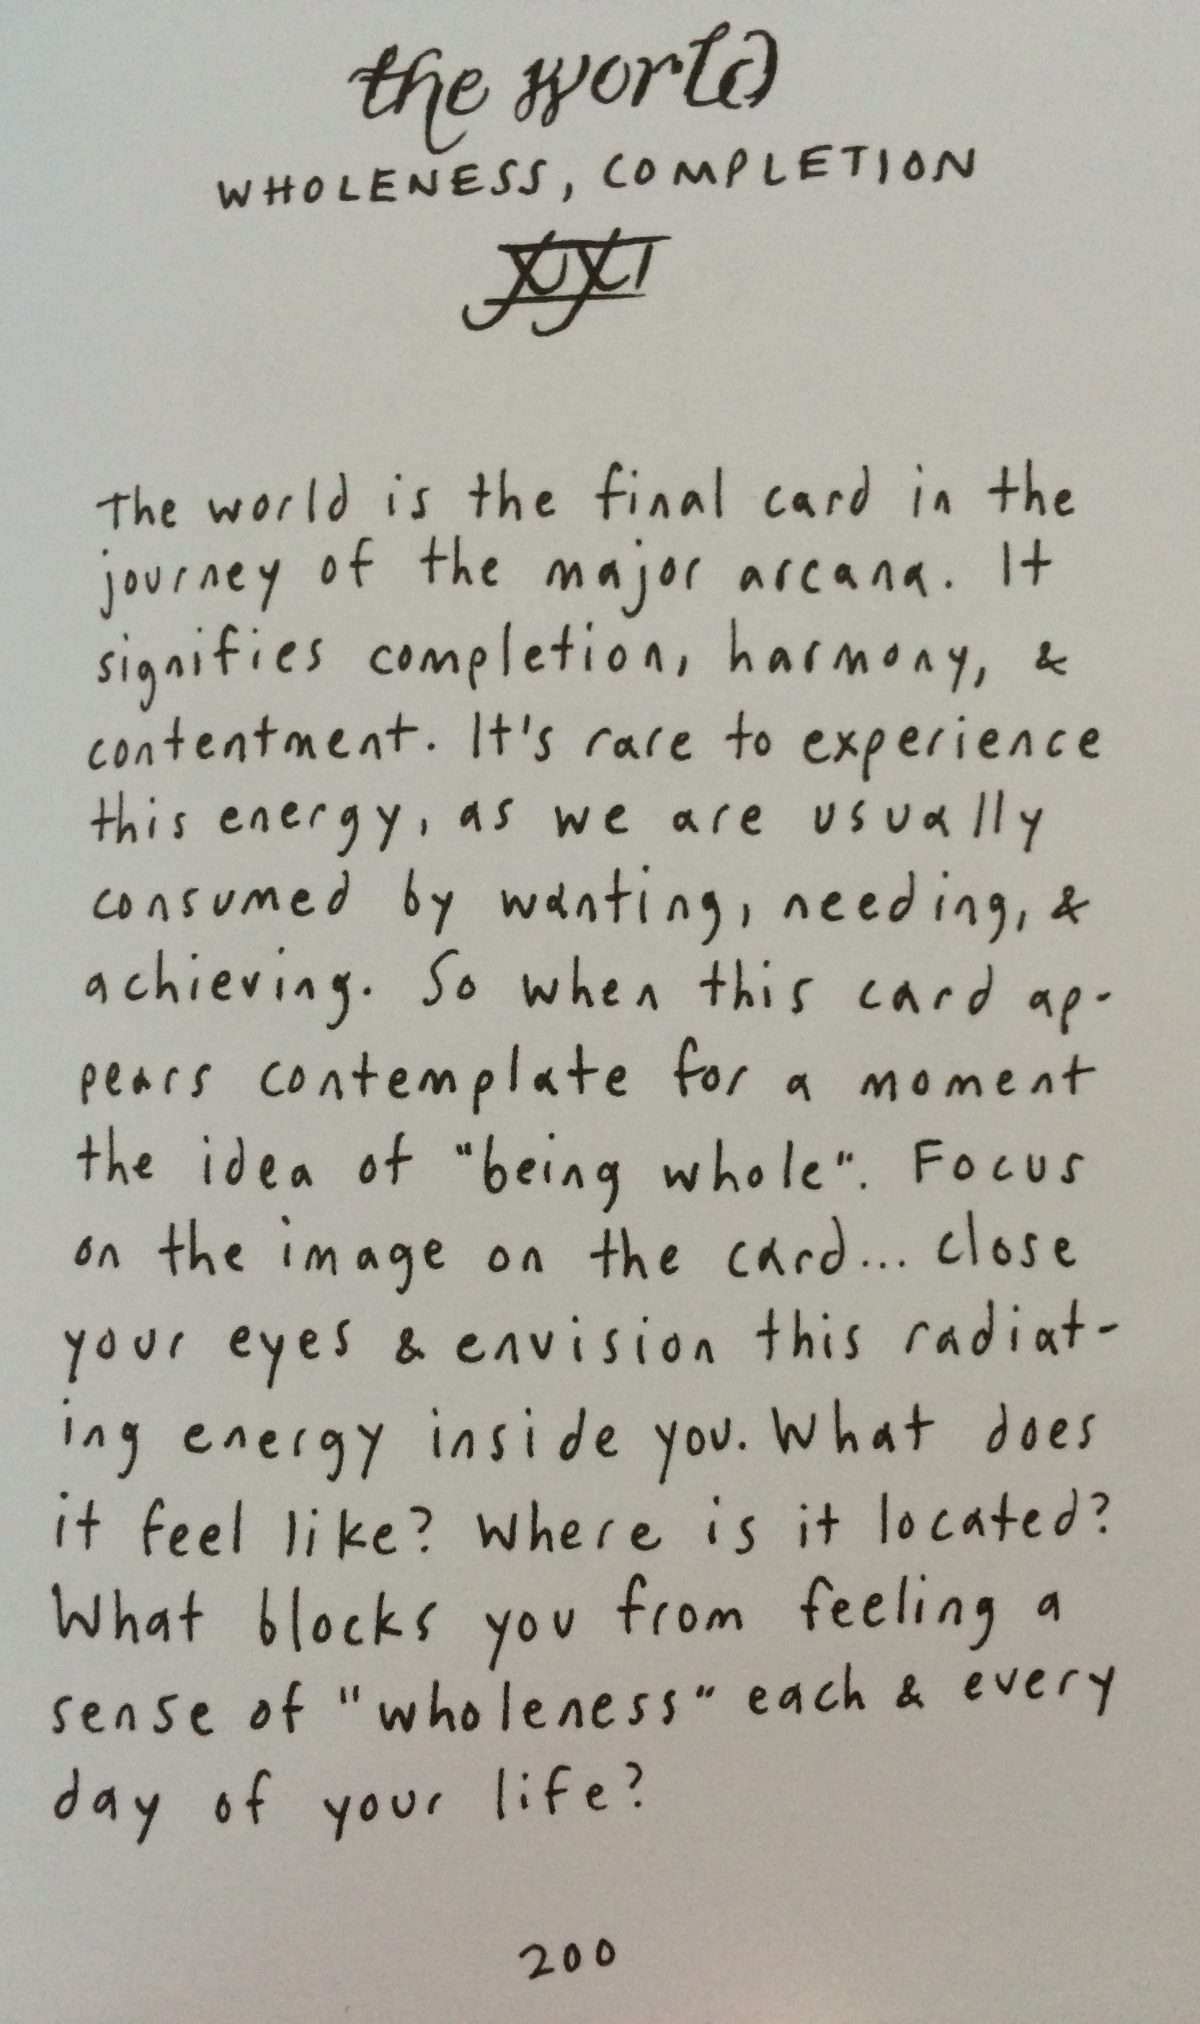 the world
WHOLENESS, COMPLETION
XXI
The world is the final card in the
journey of the major arcana. It
signifies completion, harmony, &
contentment. It's rare to experience
this energy, as we are usually
consumed by wanting, needing, &
achieving. So when this card ap-
pears contemplate for a moment
the idea of "being whole". Focus
on the image on the card... close
your eyes & envision this radiat-
ing energy inside you. What does
it feel like? Where is it located?
What blocks you from feeling a
sense of "wholeness" each & every
day of your life?
200